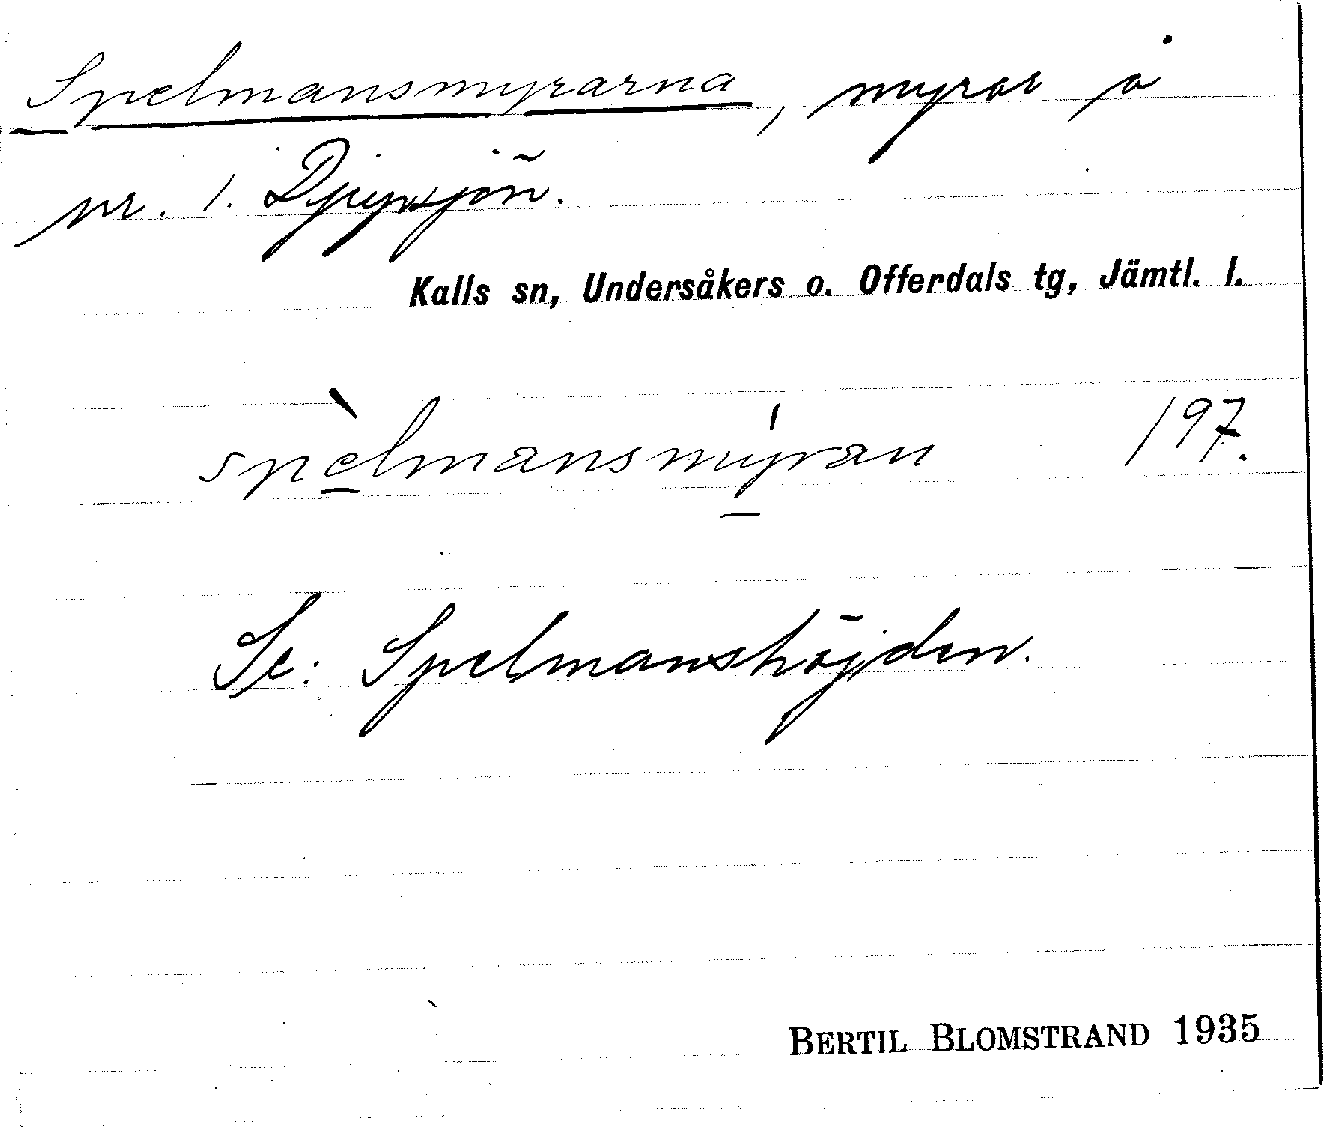 Spelmansmyrarna, myrar å
nr. 1. Djupsjön.
Kalls sn, Undersåkers o. Offerdals tg, Jämtl. l.
spèlmansmýran 197.
Se: Spelmanshöjden.
BERTIL BLOMSTRAND 1935